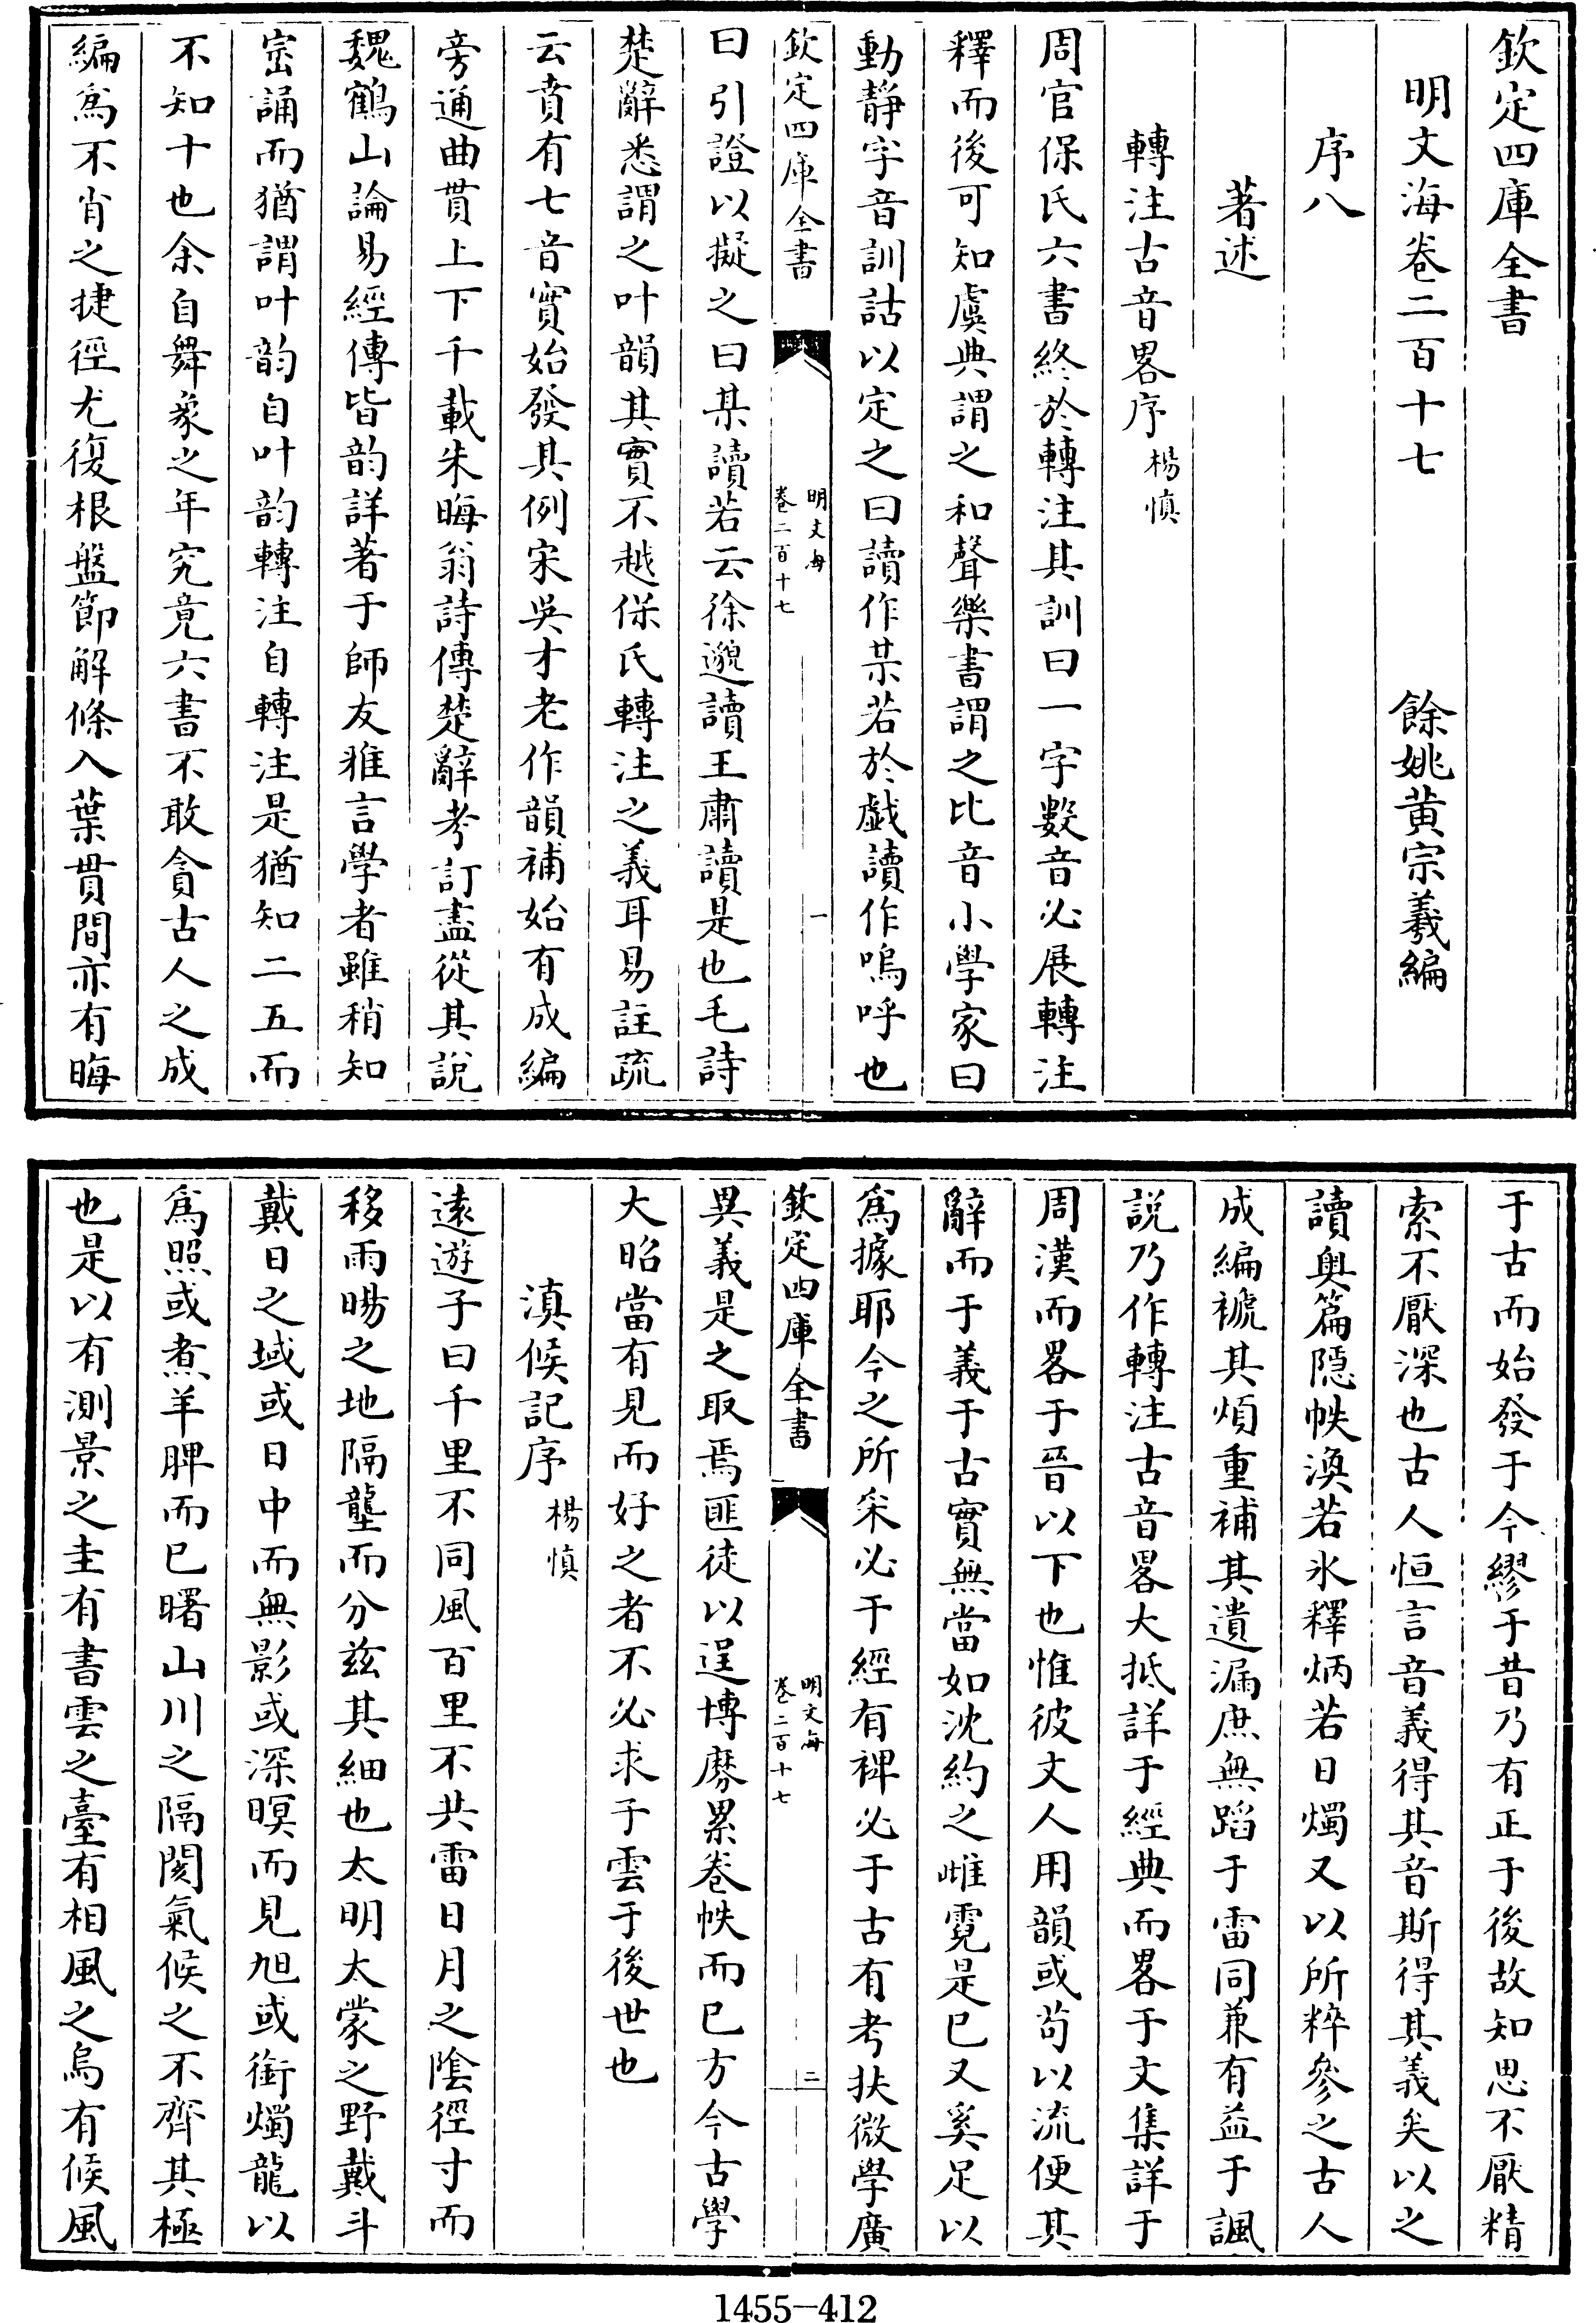 欽定四庫全書
明文海卷二百十七
餘姚黄宗羲編
序八
著述
轉注古音畧序
楊慎
周官保氏六書終於轉注其訓曰一字數音必展轉注
釋而後可知虞典謂之和聲樂書謂之比音小學家曰
動靜字音訓詁以定之曰讀作某若於戲讀作嗚呼也
欽定四庫全書
明文海
卷二百十七
一
曰引證以擬之曰某讀若云徐邈讀王肅讀是也毛詩
楚辭悉謂之叶韻其實不越保氏轉注之義耳易註疏
云賁有七音實始發其例宋吳才老作韻補始有成編
旁通曲貫上下千載朱晦翁詩傳楚辭考訂盡從其說
魏鶴山論易經傳皆韵詳著于師友雅言學者雖稍知
宻誦而猶謂叶韵自叶韵轉注自轉注是猶知二五而
不知十也余自舞象之年究竟六書不敢貪古人之成
編爲不肖之捷徑尤復根盤節解條入葉貫間亦有晦
于古而始發于今繆于昔乃有正于後故知思不厭精
索不厭深也古人恒言音義得其音斯得其義矣以之
讀奥篇隠帙渙若氷釋炳若日燭又以所粹參之古人
成編褫其煩重補其遺漏庶無蹈于雷同兼有益于諷
説乃作轉注古音畧大抵詳于經典而畧于文集詳于
周漢而畧于晉以下也惟彼文人用韻或苟以流便其
辭而于義于古實無當如沈約之雌霓是已又奚足以
爲據耶今之所采必于經有裨必于古有考扶微學廣
欽定四庫全書
明文海
卷二百十七
二
異義是之取焉匪徒以逞博靡累卷帙而已方今古學
大昭當有見而好之者不必求于雲于後世也
滇候記序
楊慎
遠遊子曰千里不同風百里不共雷日月之隂徑寸而
移雨暘之地隔壟而分兹其細也太明太蒙之野戴斗
戴日之域或日中而無影或深暝而見旭或銜燭龍以
爲照或煮羊脾而已曙山川之隔閡氣候之不齊其極
也是以有測景之圭有書雲之臺有相風之烏有候風
1455—412